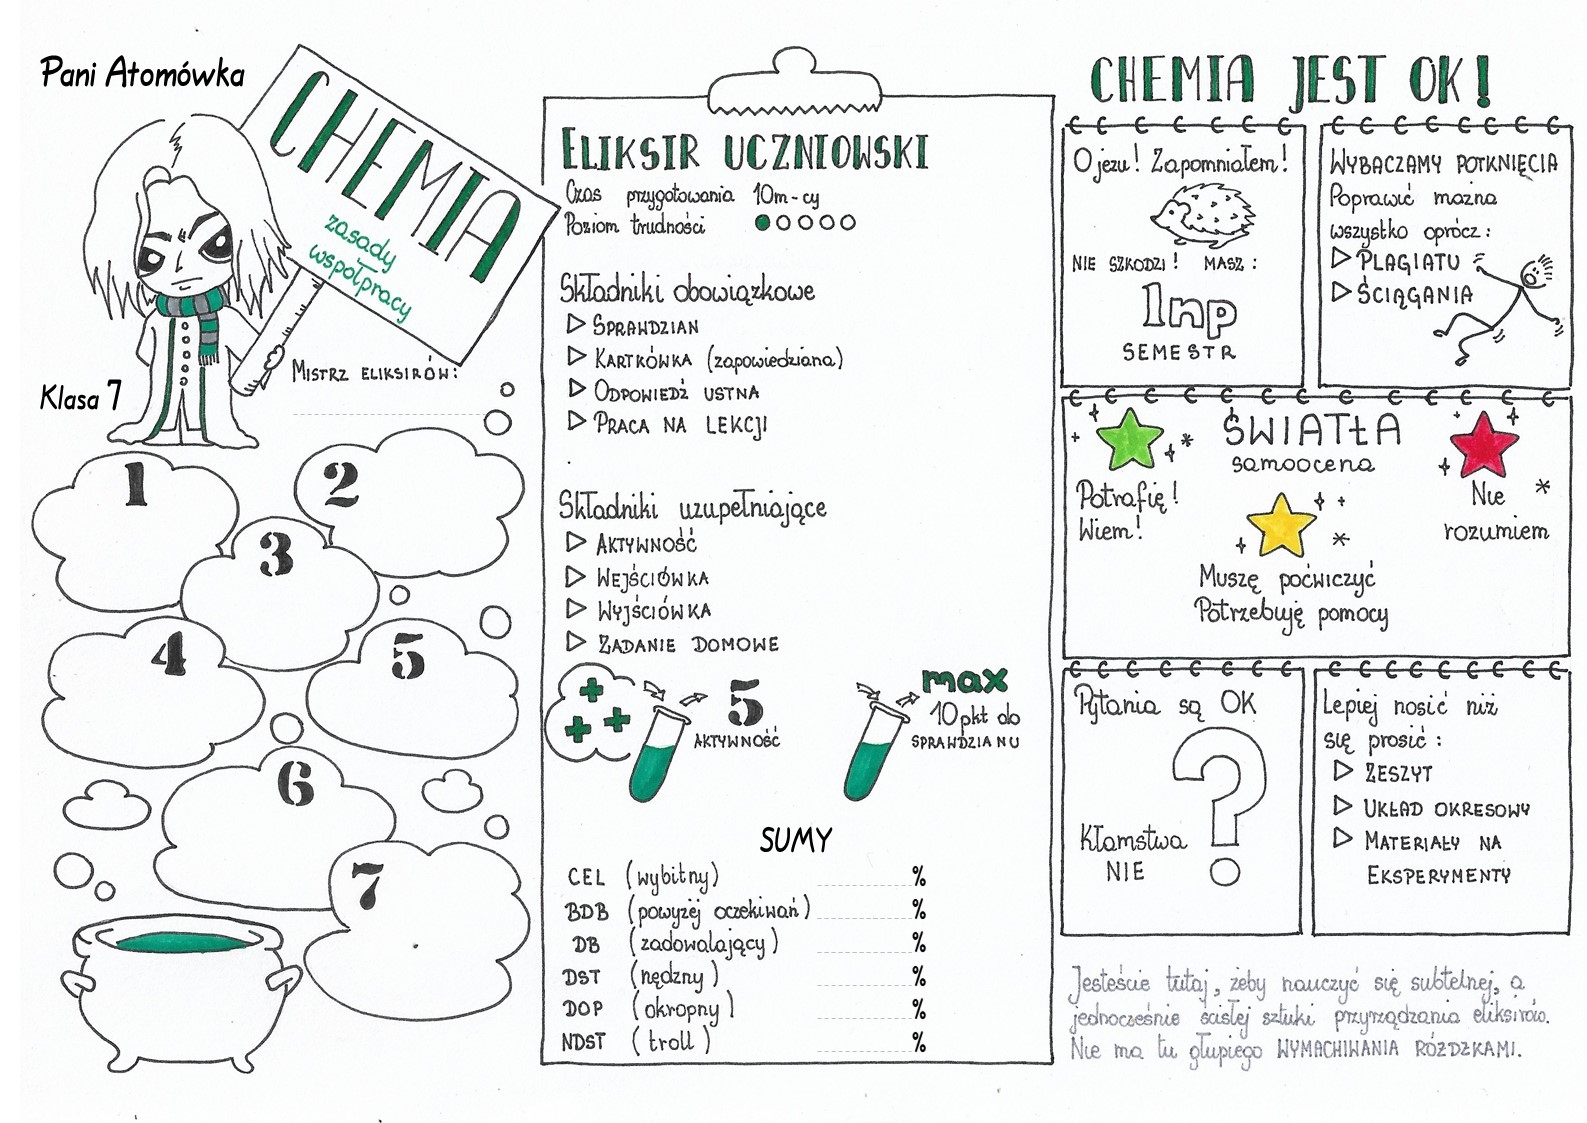 Pani Atomówka
CHEMIA
zasady
współpracy
Klasa 7
MISTRZ ELIKSIRÓW:
1
2
3
4
5
6
7
ELIKSIR UCZNIOWSKI
Czas przygotowania 10m-cy
Poziom trudności
Składniki obowiązkowe
SPRAWDZIAN
KARTKÓWKA (zapowiedziana)
ODPOWIEDŹ USTNA
PRACA NA LEKCJI
Składniki uzupełniające
AKTYWNOŚĆ
WEJŚCIÓWKA
WYJŚCIÓWKA
ZADANIE DOMOWE
5
AKTYWNOŚĆ
max
10pkt do
SPRAWDZIANU
SUMY
CEL (wybitny) %
BDB (powyżej oczekiwań) %
DB (zadowalający) %
DST (nędzny) %
DOP (okropny) %
NDST (troll) %
CHEMIA JEST OK!
O jezu! Zapomniałem!
NIE SZKODZI! MASZ:
1np
SEMESTR
WYBACZAMY POTKNIĘCIA
Poprawić można
wszystko oprócz:
PLAGIATU
ŚCIĄGANIA
ŚWIATŁA
samoocena
Potrafię!
Wiem!
Nie
rozumiem
Muszę poćwiczyć
Potrzebuję pomocy
Pytania są OK
?
Kłamstwa
NIE
Lepiej nosić niż
się prosić:
ZESZYT
UKŁAD OKRESOWY
MATERIAŁY NA
EKSPERYMENTY
Jesteście tutaj, żeby nauczyć się subtelnej, a
jednocześnie ścisłej sztuki przyrządzania eliksirów.
Nie ma tu głupiego WYMACHIWANIA RÓŻDŻKAMI.